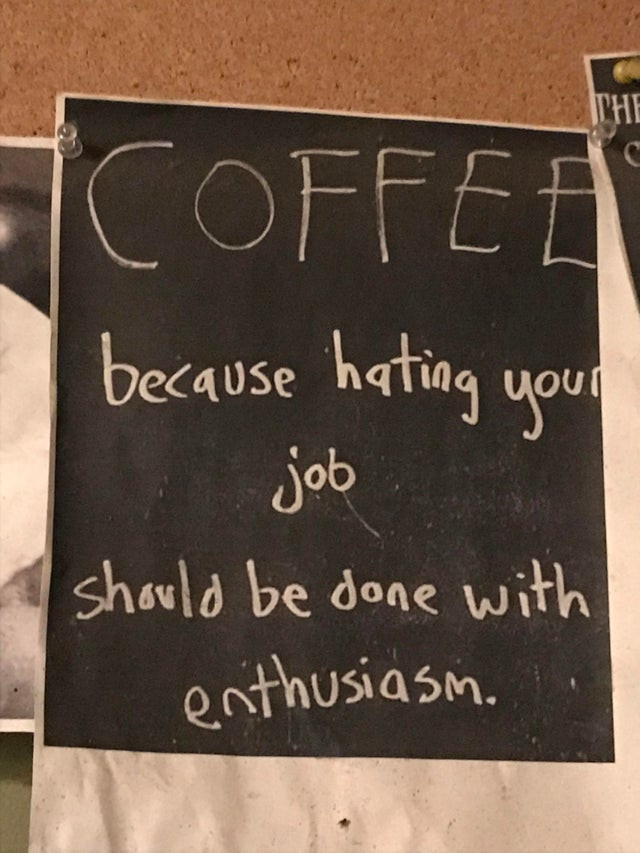 COFFEE
because hating your
job
should be done with
enthusiasm.
THE